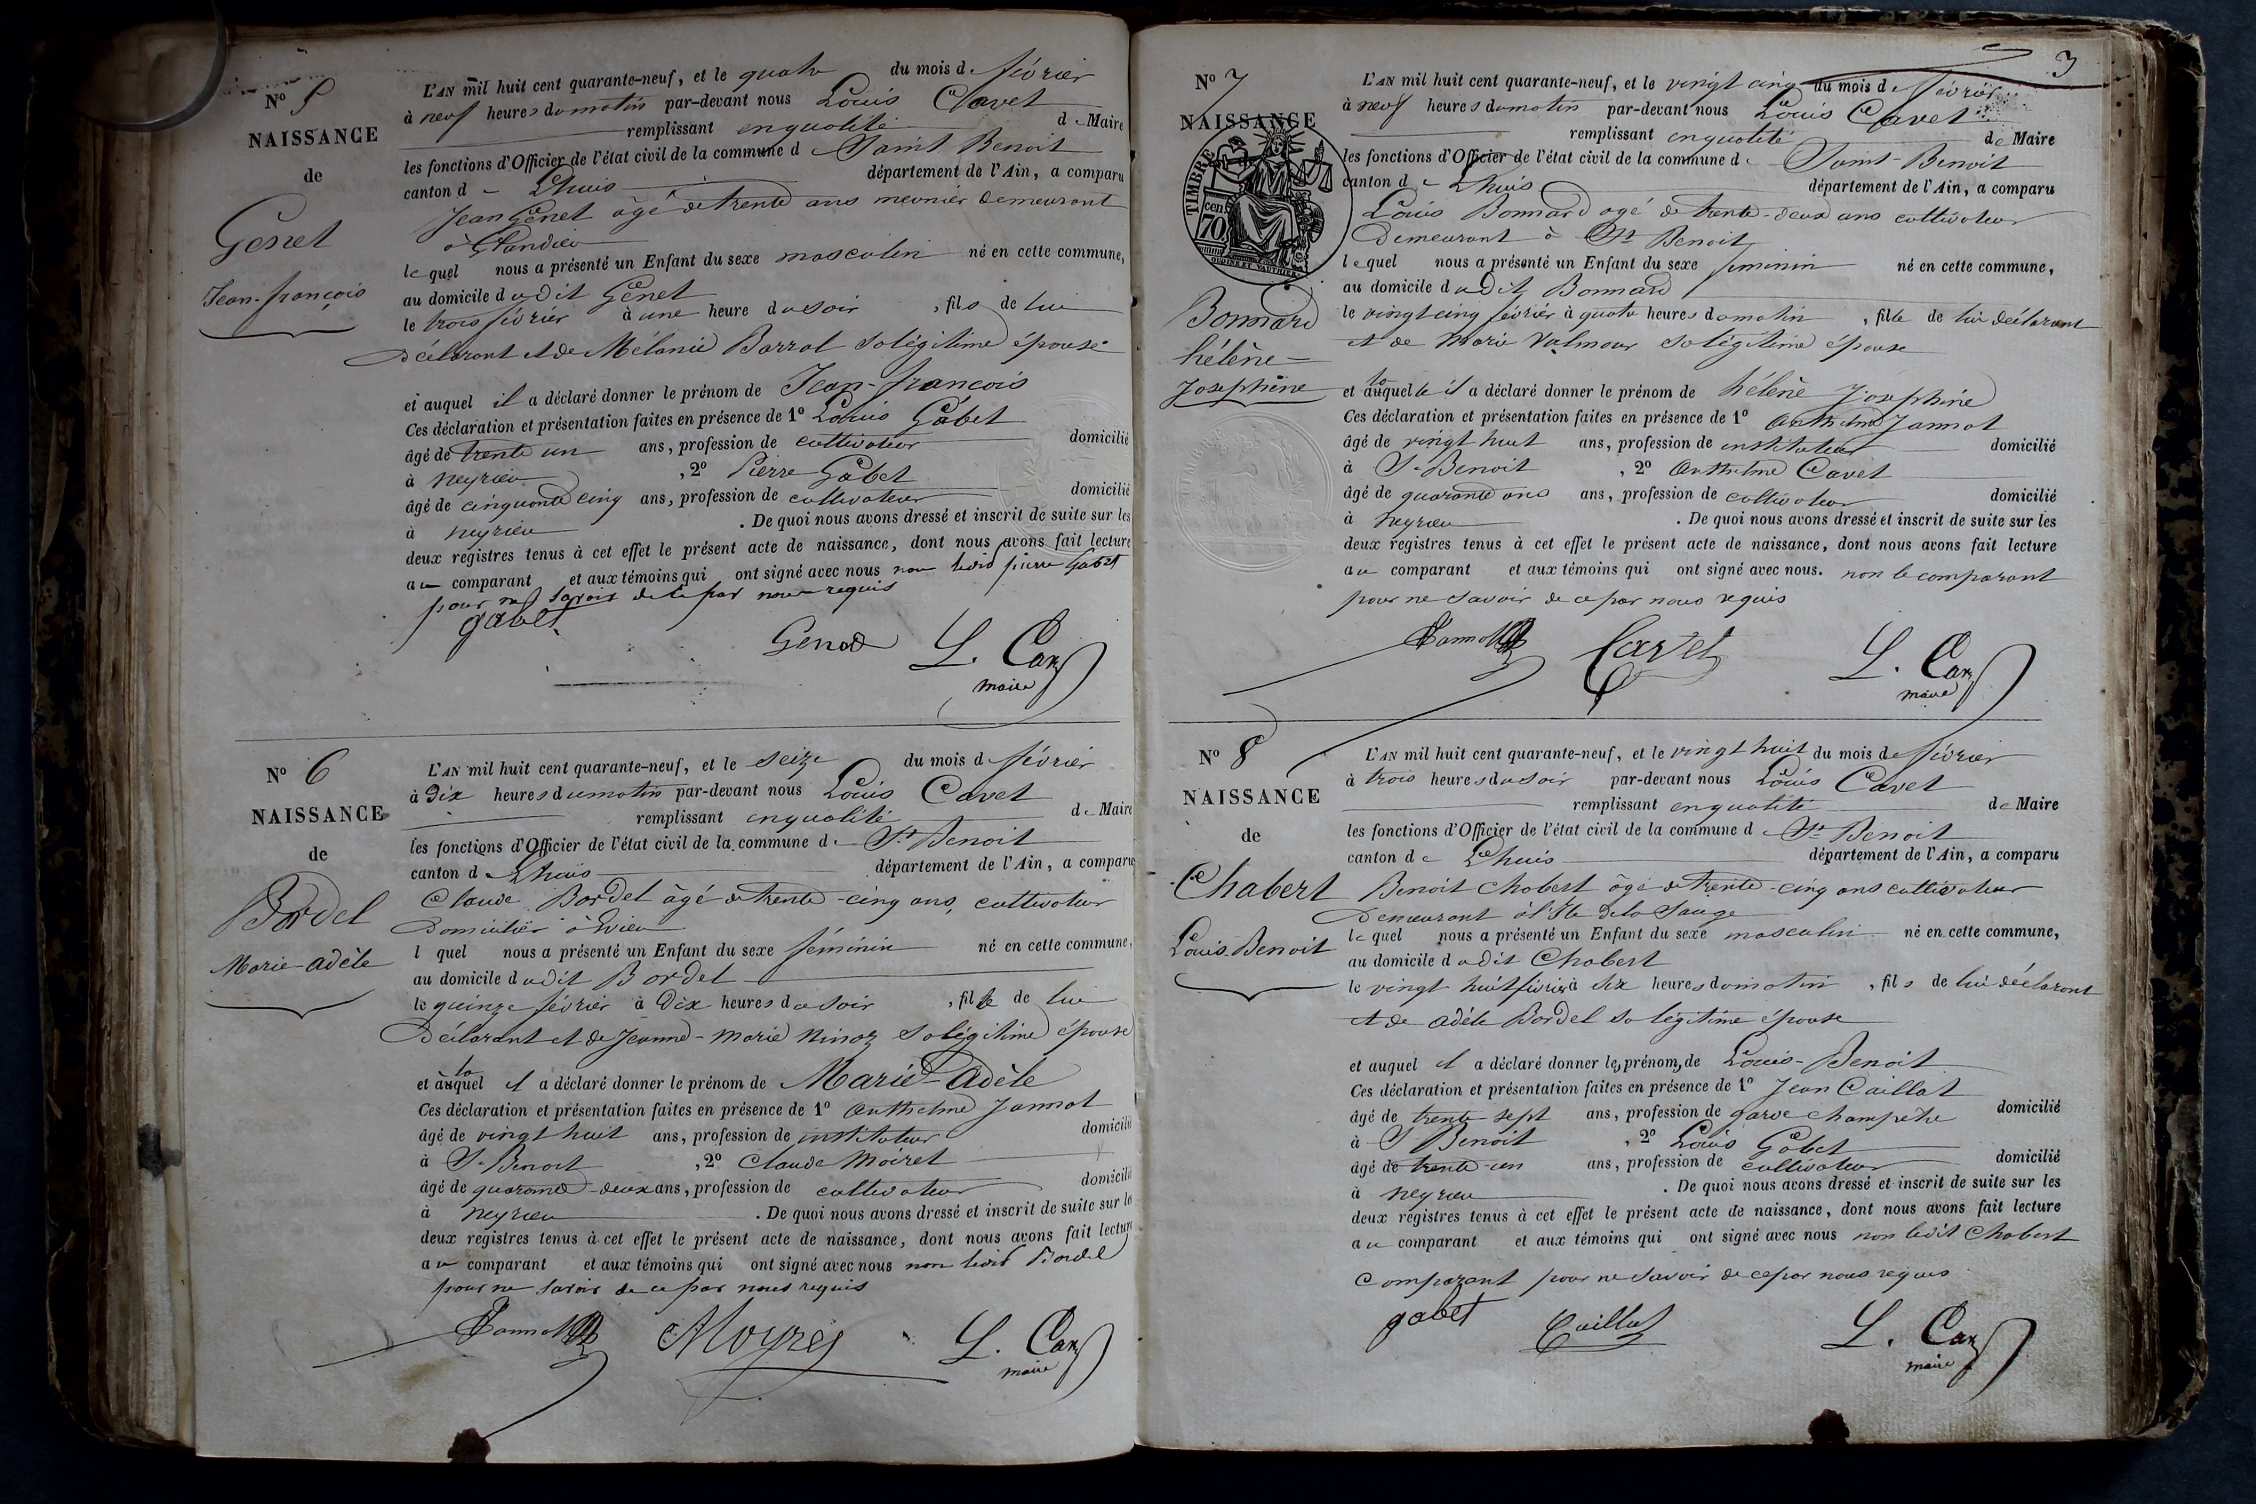 N° 5
NAISSANCE
de
Genet
Jean-françois
L'AN mil huit cent quarante-neuf, et le quatre du mois de février
à neuf heures du matin par-devant nous Louis Cavet
remplissant en qualité de Maire
les fonctions d'Officier de l'état civil de la commune de Saint Benoit
canton de Lhuis département de l'Ain, a comparu
Jean Genet âgé de trente ans meunier demeurant
à Glandieu
lequel nous a présenté un Enfant du sexe masculin né en cette commune,
au domicile dudit Genet
le trois février à une heure du soir, fils de lui
Déclarant et de Mélanie Barral sa légitime épouse
et auquel il a déclaré donner le prénom de Jean-françois
Ces déclaration et présentation faites en présence de 1° Louis Gabet
âgé de trente un ans, profession de cultivateur domicilié
à neyrieu, 2° Pierre Gabet
âgé de cinquante cinq ans, profession de cultivateur domicilié
à neyrieu. De quoi nous avons dressé et inscrit de suite sur les
deux registres tenus à cet effet le présent acte de naissance, dont nous avons fait lecture
au comparant et aux témoins qui ont signé avec nous non ledit pierre Gabet
pour ne savoir de ce par nous requis
gabet
Genet L. Cavet
maire
N° 6
NAISSANCE
de
Bordel
Marie-adèle
L'AN mil huit cent quarante-neuf, et le seize du mois de février
à Dix heures du matin par-devant nous Louis Cavet
remplissant en qualité de Maire
les fonctions d'Officier de l'état civil de la commune de St Benoit
canton de Lhuis département de l'Ain, a comparu
Claude Bordel âgé de trente-cinq ans, cultivateur
Domicilié à Evieu
l quel nous a présenté un Enfant du sexe féminin né en cette commune,
au domicile dudit Bordel
le quinze février à Dix heures du soir, fille de lui
Déclarant et de Jeanne-Marie Ninoz sa légitime épouse
et à laquel il a déclaré donner le prénom de Marie-Adèle
Ces déclaration et présentation faites en présence de 1° Anthelme Jannot
âgé de vingt huit ans, profession de instituteur domicilié
à St Benoit, 2° Claude Moiret
âgé de quarante-deux ans, profession de cultivateur domicilié
à neyrieu. De quoi nous avons dressé et inscrit de suite sur les
deux registres tenus à cet effet le présent acte de naissance, dont nous avons fait lecture
au comparant et aux témoins qui ont signé avec nous non ledit Bordel
pour ne savoir de ce par nous requis
Jannot Moyret L. Cavet
maire
3
N° 7
NAISSANCE
TIMBRE
70 cen.
OUDINE ET VAUTHIER
Bonnard
hélène-
Josephine
L'AN mil huit cent quarante-neuf, et le vingt cinq du mois de février
à neuf heures du matin par-devant nous Louis Cavet
remplissant en qualité de Maire
les fonctions d'Officier de l'état civil de la commune de Saint-Benoit
canton de Lhuis département de l'Ain, a comparu
Louis Bonnard agé de trente-deux ans cultivateur
Demeurant à St Benoit
lequel nous a présenté un Enfant du sexe feminin né en cette commune,
au domicile dudit Bonnard
le vingt cinq février à quatre heures du matin, fille de lui déclarant
et de Marie Valmour sa légitime épouse
et à laquelle il a déclaré donner le prénom de hélène Josephine
Ces déclaration et présentation faites en présence de 1° Anthelme Jannot
âgé de vingt huit ans, profession de instituteur domicilié
à St Benoit, 2° Anthelme Cavet
âgé de quarante ans ans, profession de cultivateur domicilié
à neyrieu. De quoi nous avons dressé et inscrit de suite sur les
deux registres tenus à cet effet le présent acte de naissance, dont nous avons fait lecture
au comparant et aux témoins qui ont signé avec nous. non le comparant
pour ne savoir de ce par nous requis
Jannot Cavet L. Cavet
maire
N° 8
NAISSANCE
de
Chabert
Louis-Benoit
L'AN mil huit cent quarante-neuf, et le vingt huit du mois de février
à trois heures du soir par-devant nous Louis Cavet
remplissant en qualité de Maire
les fonctions d'Officier de l'état civil de la commune de St Benoit
canton de Lhuis département de l'Ain, a comparu
Benoit Chabert âgé de trente-cinq ans cultivateur
Demeurant à l'Ile de la Sauge
lequel nous a présenté un Enfant du sexe masculin né en cette commune,
au domicile dudit Chabert
le vingt huit février à six heures du matin, fils de lui déclarant
et de Adèle Bordel sa légitime épouse
et auquel il a déclaré donner les prénoms de Louis-Benoit
Ces déclaration et présentation faites en présence de 1° Jean Caillat
âgé de trente sept ans, profession de garde champêtre domicilié
à St Benoit, 2° Louis Gabet
âgé de trente-un ans, profession de cultivateur domicilié
à neyrieu. De quoi nous avons dressé et inscrit de suite sur les
deux registres tenus à cet effet le présent acte de naissance, dont nous avons fait lecture
au comparant et aux témoins qui ont signé avec nous non ledit Chabert
Comparant pour ne savoir de ce par nous requis
gabet Caillat L. Cavet
maire